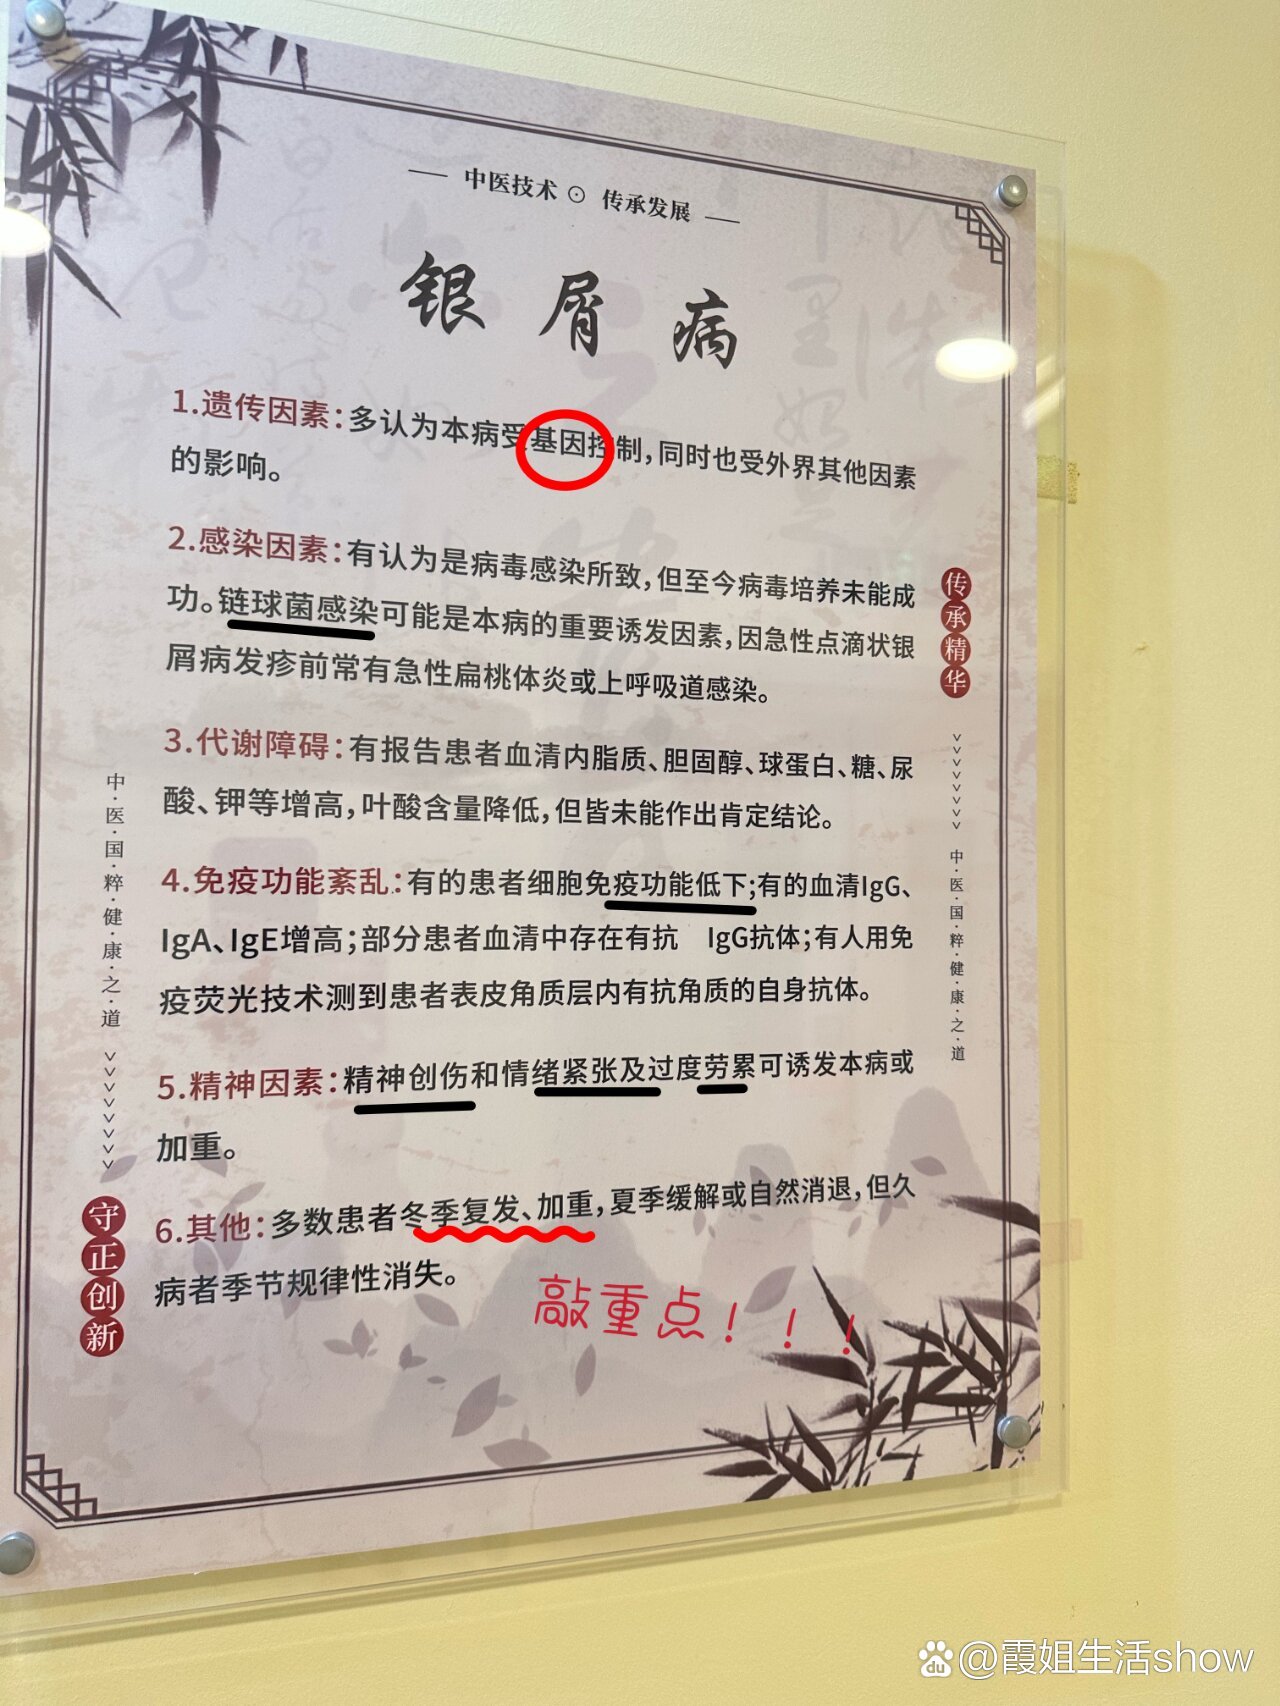 中医技术⊙传承发展
银屑病
1.遗传因素：多认为本病受基因控制，同时也受外界其他因素
的影响。
2.感染因素：有认为是病毒感染所致，但至今病毒培养未能成
功。链球菌感染可能是本病的重要诱发因素，因急性点滴状银
屑病发疹前常有急性扁桃体炎或上呼吸道感染。
3.代谢障碍：有报告患者血清内脂质、胆固醇、球蛋白、糖、尿
酸、钾等增高，叶酸含量降低，但皆未能作出肯定结论。
4.免疫功能紊乱：有的患者细胞免疫功能低下；有的血清IgG、
IgA、IgE增高；部分患者血清中存在有抗 IgG抗体；有人用免
疫荧光技术测到患者表皮角质层内有抗角质的自身抗体。
5.精神因素：精神创伤和情绪紧张及过度劳累可诱发本病或
加重。
6.其他：多数患者冬季复发、加重，夏季缓解或自然消退，但久
病者季节规律性消失。
敲重点！！！
中·医·国·粹·健·康·之·道
守正创新
传承精华
中·医·国·粹·健·康·之·道
Baidu @霞姐生活show